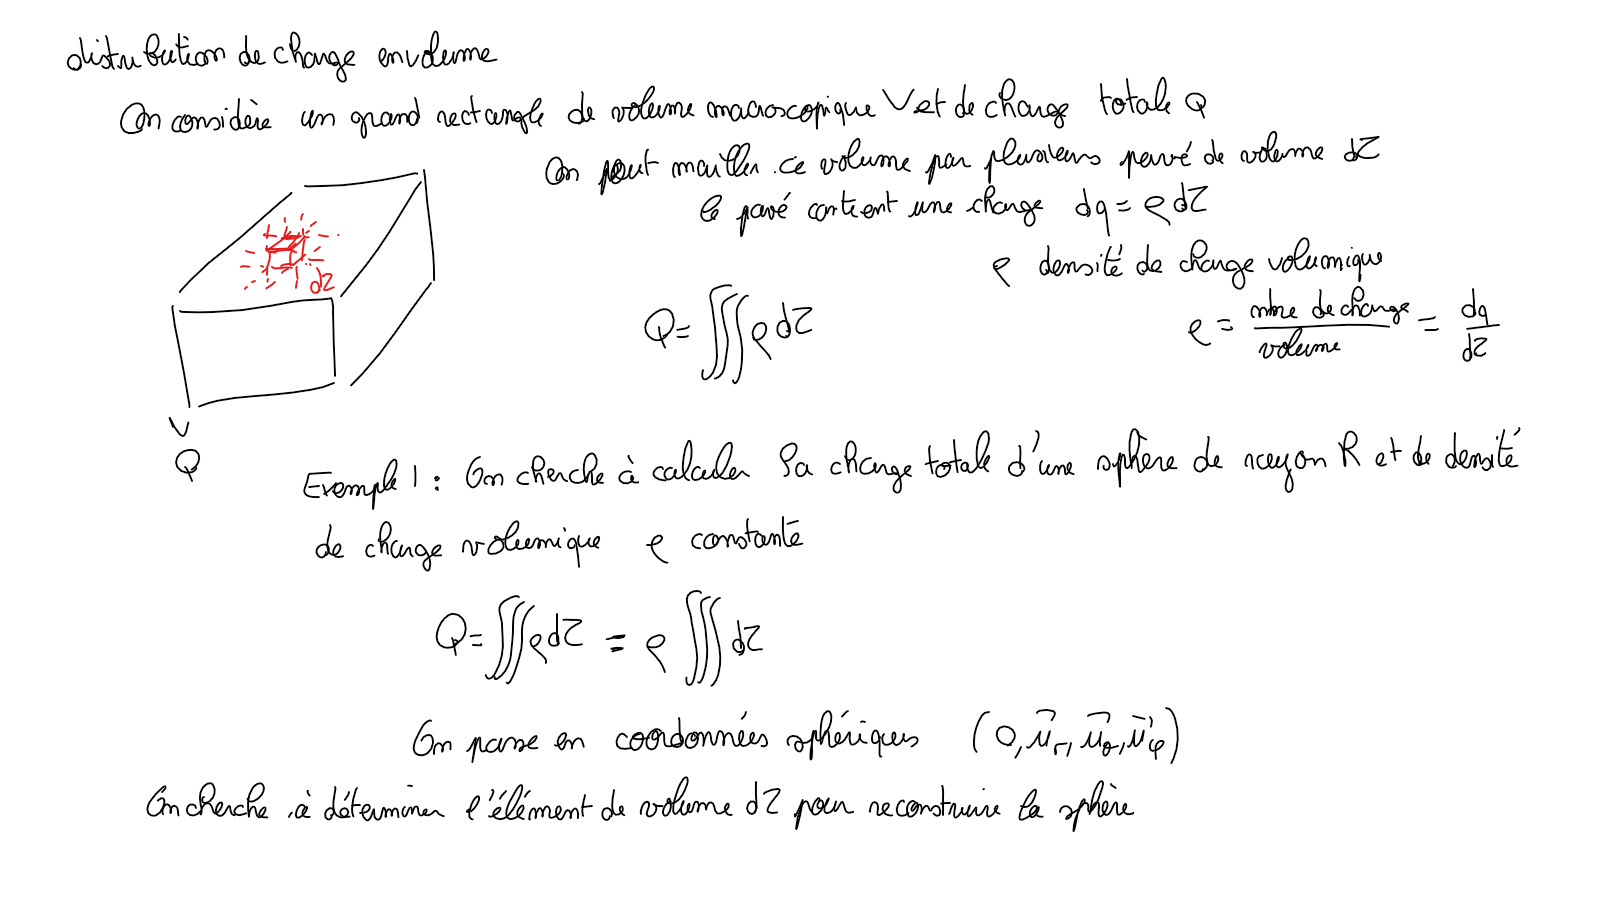 distribution de charge en volume
On considère un grand rectangle de volume macroscopique V et de charge totale Q
On peut mailler ce volume par plusieurs pavé de volume dτ
le pavé contient une charge dq = ρ dτ
ρ densité de charge volumique
Q = ∭ ρ dτ
ρ = nbre de charge / volume = dq / dτ
dτ
V
Q
Exemple 1 : On cherche à calculer la charge totale d'une sphère de rayon R et de densité
de charge volumique ρ constante
Q = ∭ ρ dτ = ρ ∭ dτ
On passe en coordonnées sphériques (O, u⃗r, u⃗θ, u⃗φ)
On cherche à déterminer l'élément de volume dτ pour reconstruire la sphère